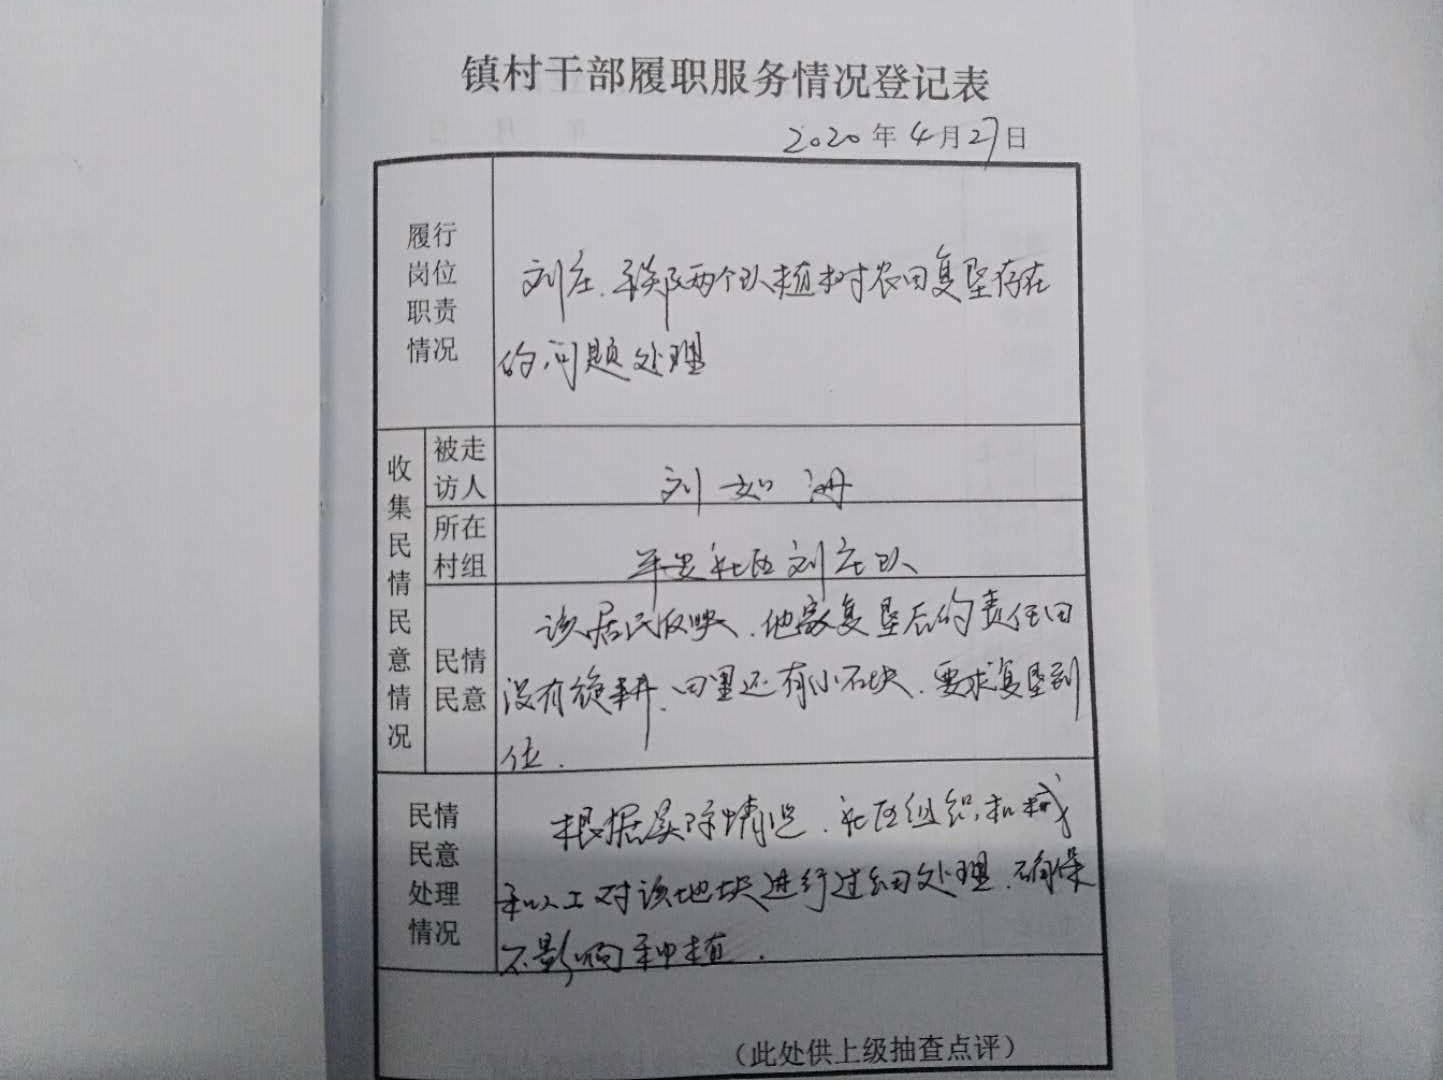 镇村干部履职服务情况登记表
2020年4月27日
履行
岗位
职责
情况
刘庄、平郑两个队植树农田复垦存在
的问题处理
收集民情民意情况
被走
访人
刘如海
所在
村组
平安社区刘庄队
民情
民意
该居民反映、他家复垦后的责任田
没有旋耕、田里还有小石块、要求复垦到
位.
民情
民意
处理
情况
根据实际情况、社区组织机械
和人工对该地块进行过细处理、确保
不影响种植.
（此处供上级抽查点评）